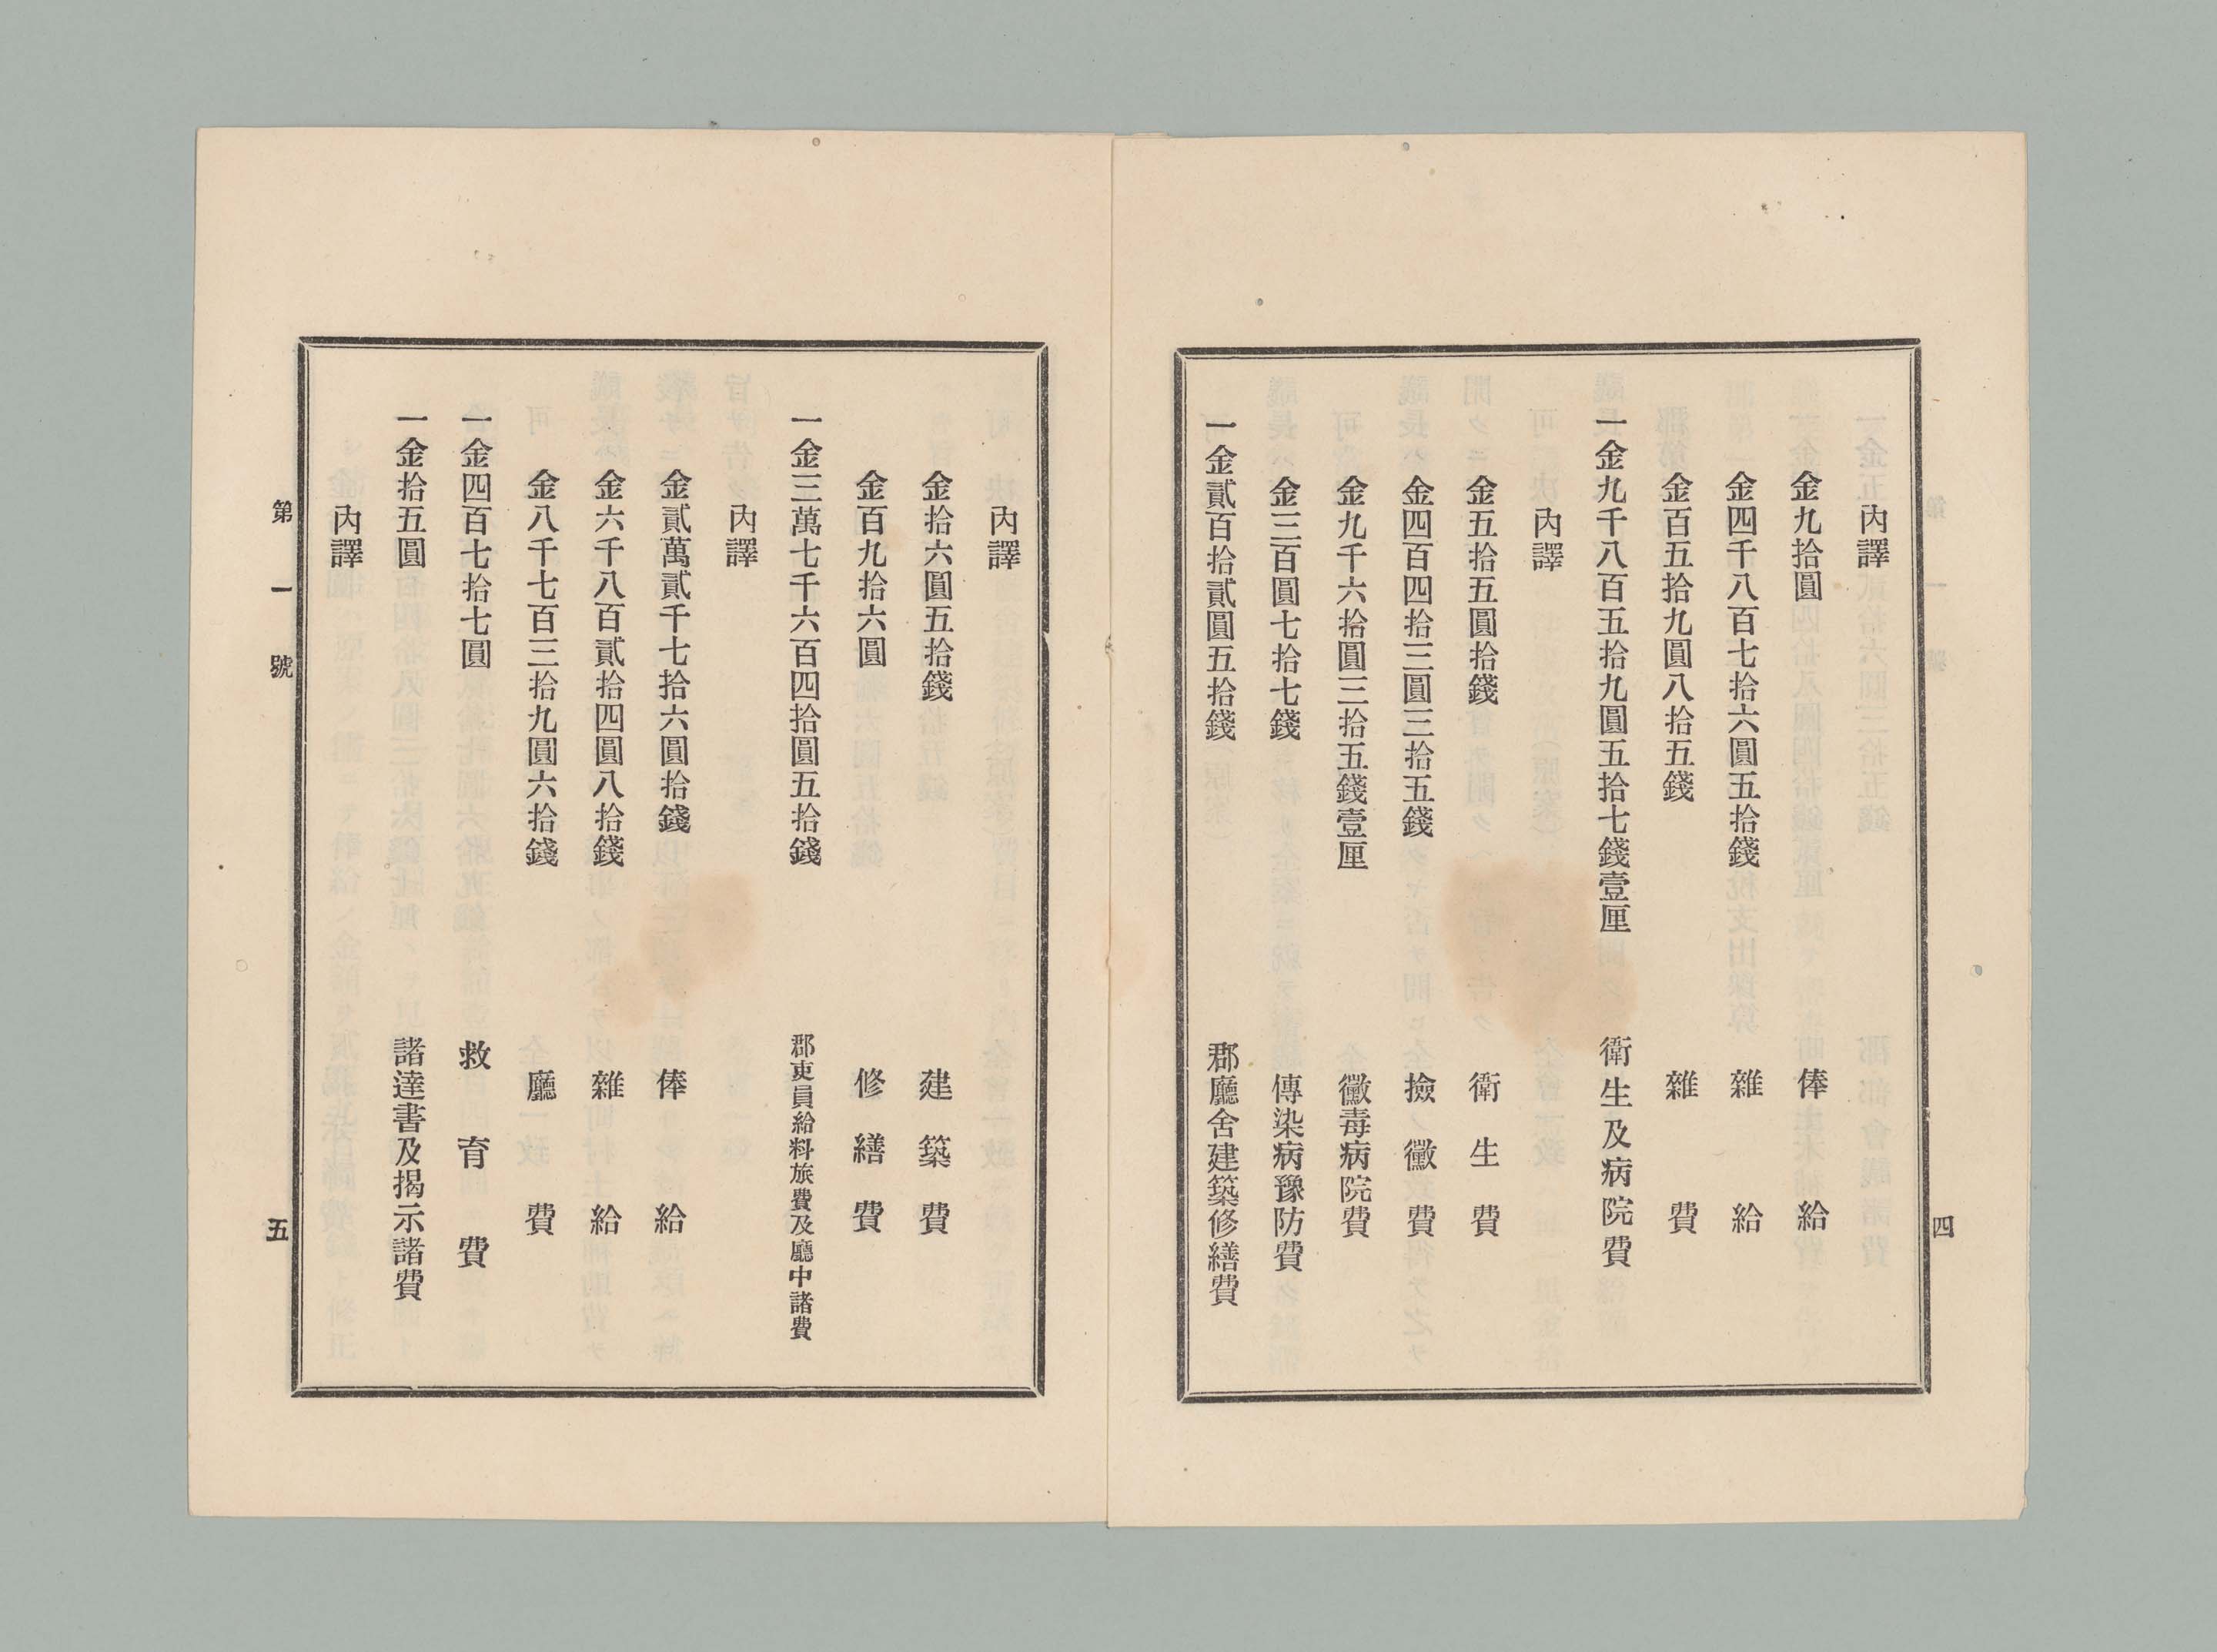 內譯
金九拾圓 俸給
金四千八百七拾六圓五拾錢 雜給
金百五拾九圓八拾五錢 雜費
一金九千八百五拾九圓五拾七錢壹厘 衛生及病院費
內譯
金五拾五圓拾錢 衛生費
金四百四拾三圓三拾五錢 撿黴費
金九千六拾圓三拾五錢壹厘 黴毒病院費
金三百圓七拾七錢 傳染病豫防費
一金貳百拾貳圓五拾錢 郡廳舍建築修繕費
四
內譯
金拾六圓五拾錢 建築費
金百九拾六圓 修繕費
一金三萬七千六百四拾圓五拾錢 郡吏員給料旅費及廳中諸費
內譯
金貳萬貳千七拾六圓拾錢 俸給
金六千八百貳拾四圓八拾錢 雜給
金八千七百三拾九圓六拾錢 廳費
一金四百七拾七圓 救育費
一金拾五圓 諸達書及揭示諸費
內譯
第一號
五